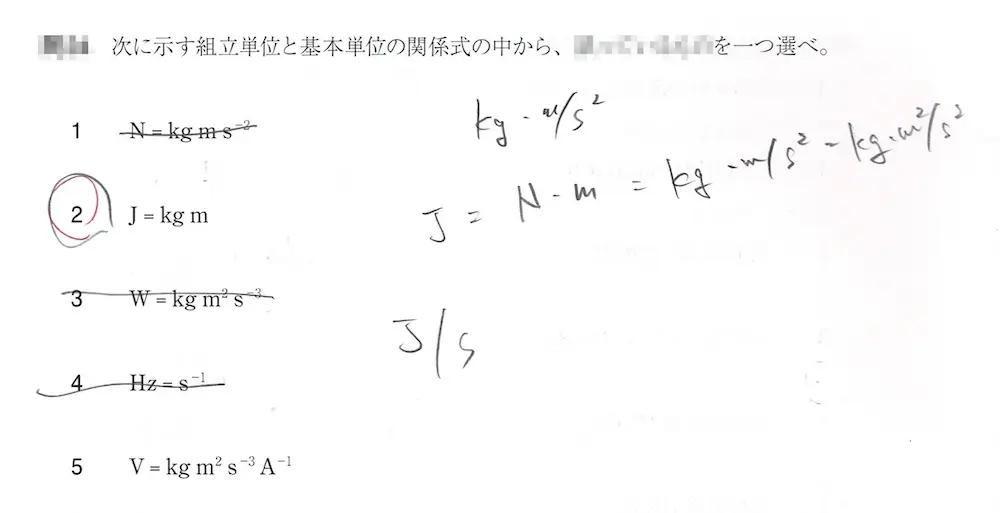 次に示す組立単位と基本単位の関係式の中から、 を一つ選べ。
1 N = kg m s⁻²
2 J = kg m
3 W = kg m² s⁻³
4 Hz = s⁻¹
5 V = kg m² s⁻³ A⁻¹
kg・m/s²
J = N・m = kg・m/s² = kg・m²/s²
J/s